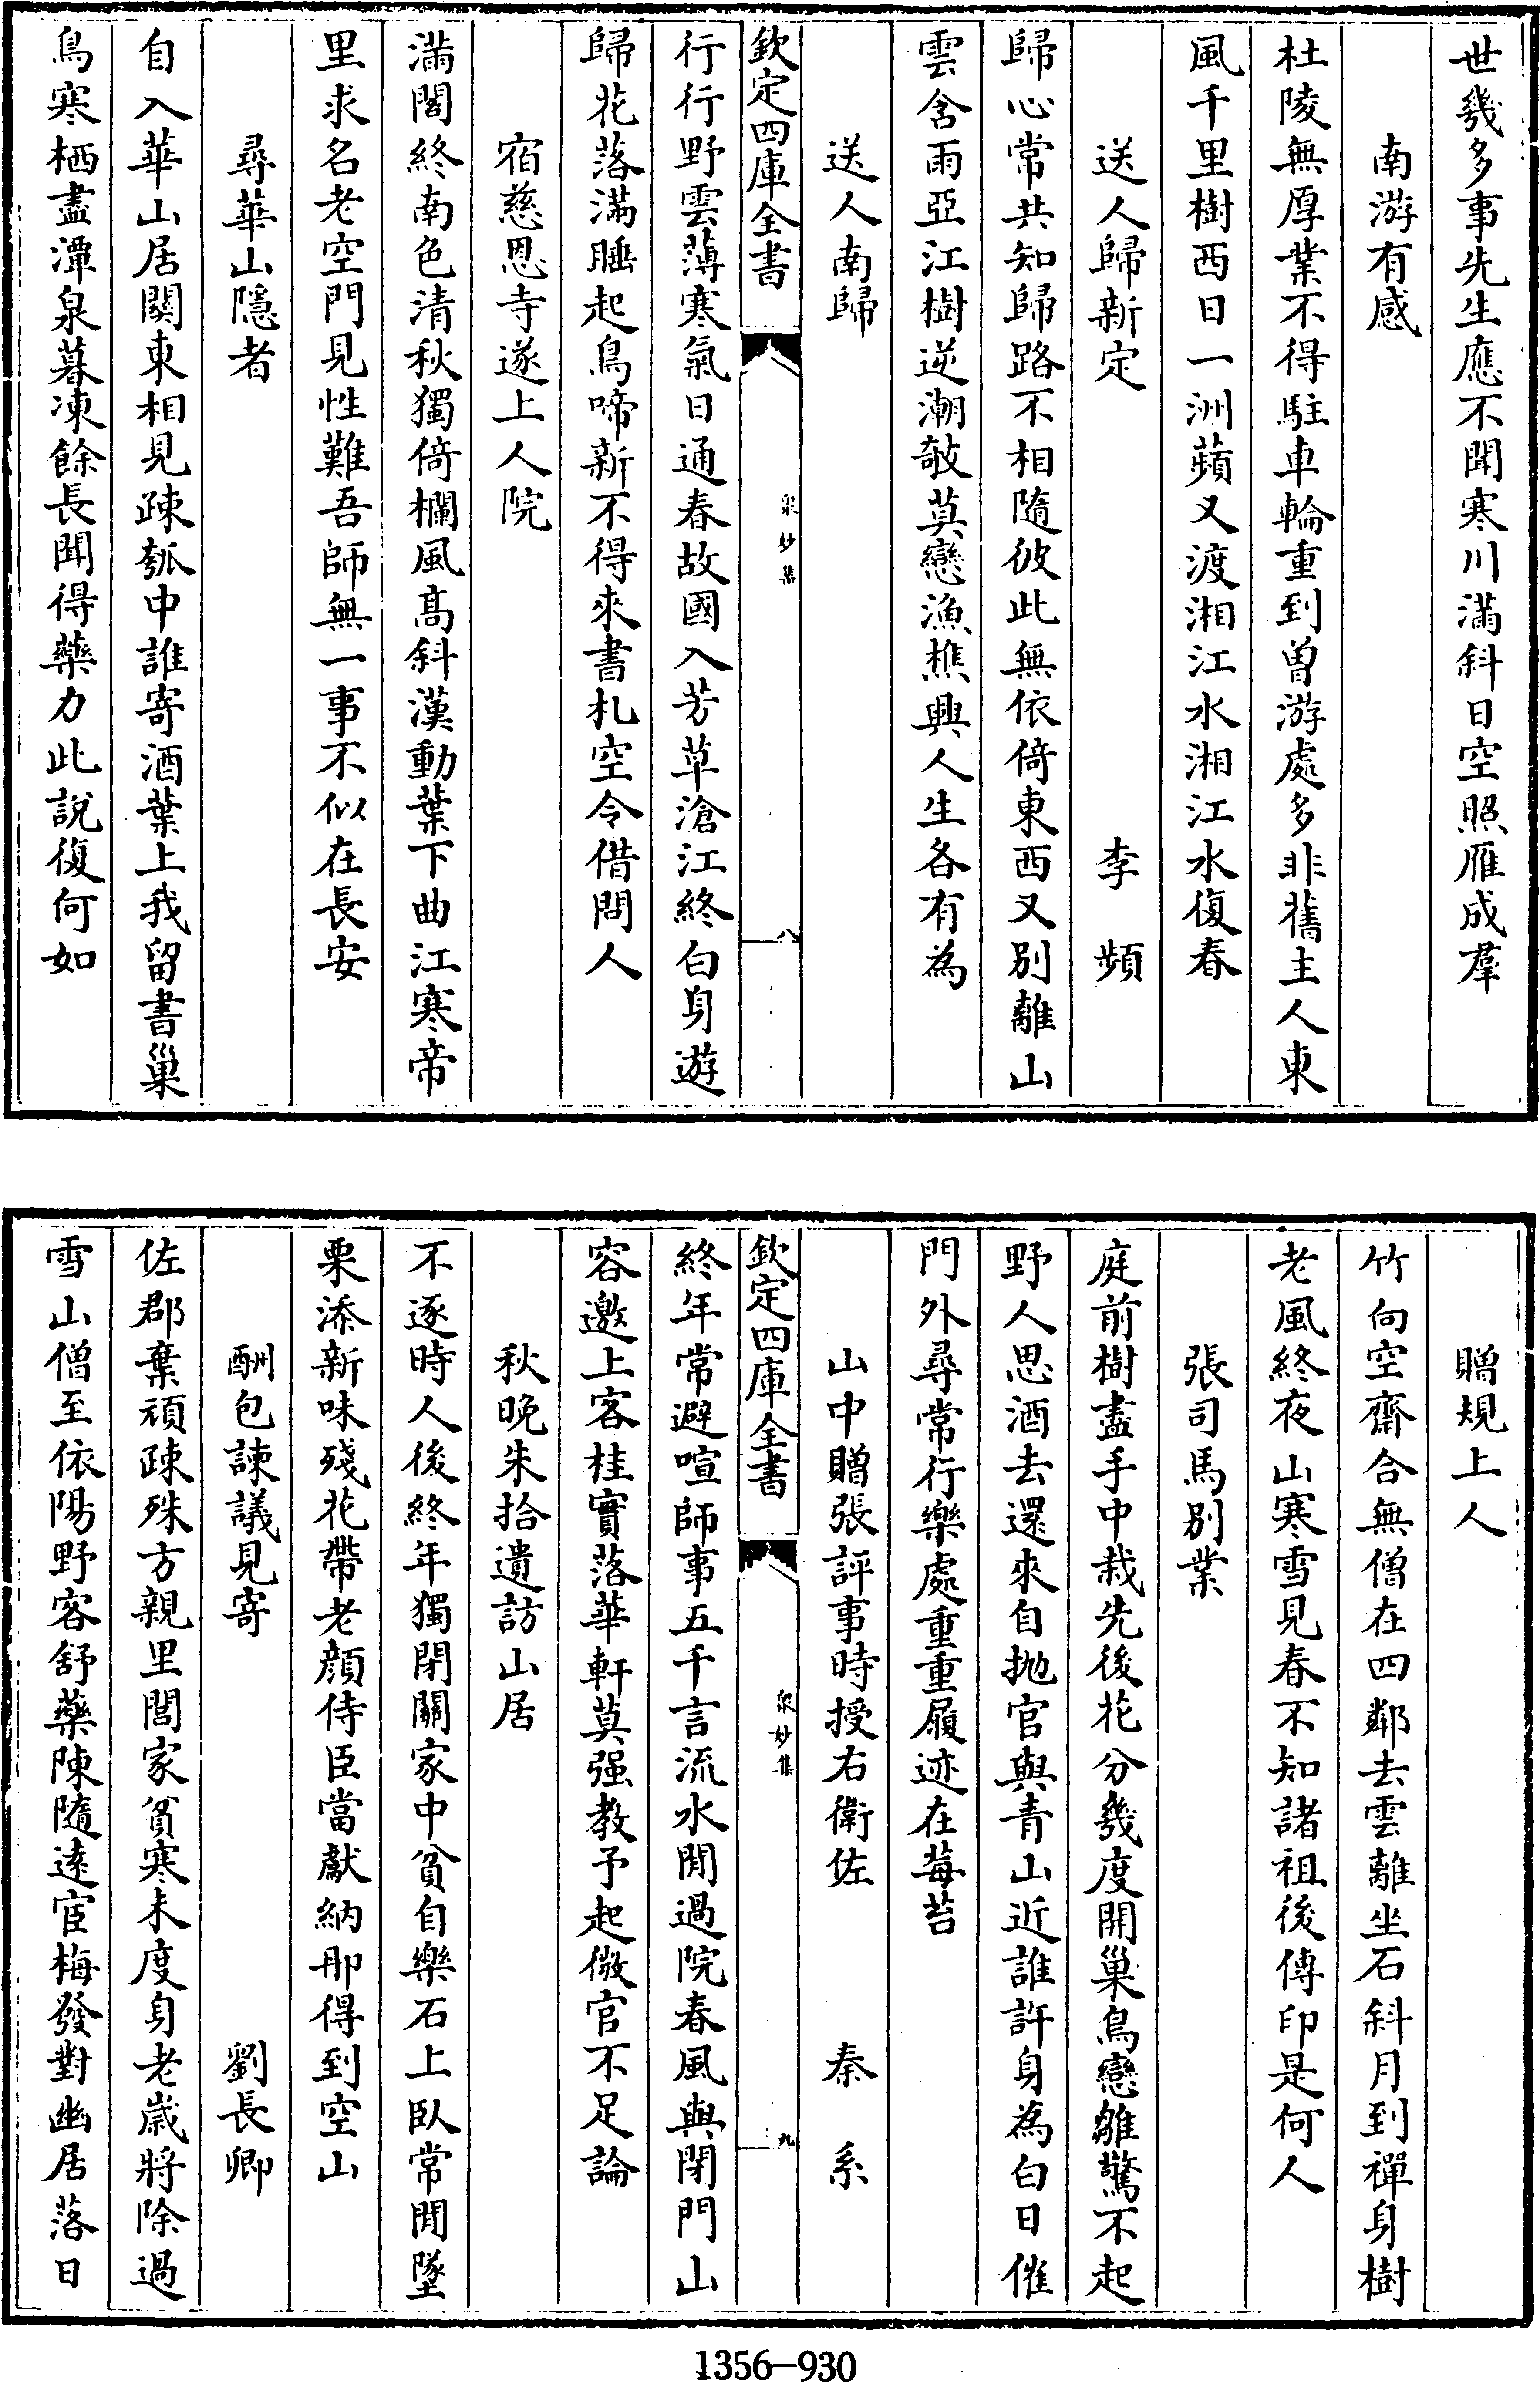 世幾多事先生應不聞寒川滿斜日空照雁成羣
南游有感
杜陵無厚業不得駐車輪重到曾游處多非舊主人東
風千里樹西日一洲蘋又渡湘江水湘江水復春
送人歸新定 李頻
歸心常共知歸路不相隨彼此無依倚東西又别離山
雲含雨亞江樹逆潮欹莫戀漁樵興人生各有為
送人南歸
欽定四庫全書 衆妙集 八
行行野雲薄寒氣日通春故國入芳草滄江終白身遊
歸花落滿睡起鳥啼新不得來書札空令借問人
宿慈恩寺遂上人院
滿閣終南色清秋獨倚欄風髙斜漢動葉下曲江寒帝
里求名老空門見性難吾師無一事不似在長安
尋華山隱者
自入華山居關東相見疎瓠中誰寄酒葉上我留書巢
鳥寒栖盡潭泉暮凍餘長聞得藥力此說復何如
贈規上人
竹向空齋合無僧在四鄰去雲離坐石斜月到禪身樹
老風終夜山寒雪見春不知諸祖後傳印是何人
張司馬别業
庭前樹盡手中栽先後花分幾度開巢鳥戀雛驚不起
野人思酒去還來自抛官與青山近誰許身為白日催
門外尋常行樂處重重屐迹在莓苔
山中贈張評事時授右衛佐 秦系
欽定四庫全書 衆妙集 九
終年常避喧師事五千言流水閒過院春風與閉門山
容邀上客桂實落華軒莫强教予起微官不足論
秋晚朱拾遺訪山居
不逐時人後終年獨閉關家中貧自樂石上臥常閒墜
栗添新味殘花帶老顏侍臣當獻納那得到空山
酬包諫議見寄 劉長卿
佐郡棄頑疎殊方親里閭家貧寒未度身老歲將除過
雪山僧至依陽野客舒藥陳隨遠宦梅發對幽居落日
1356-930